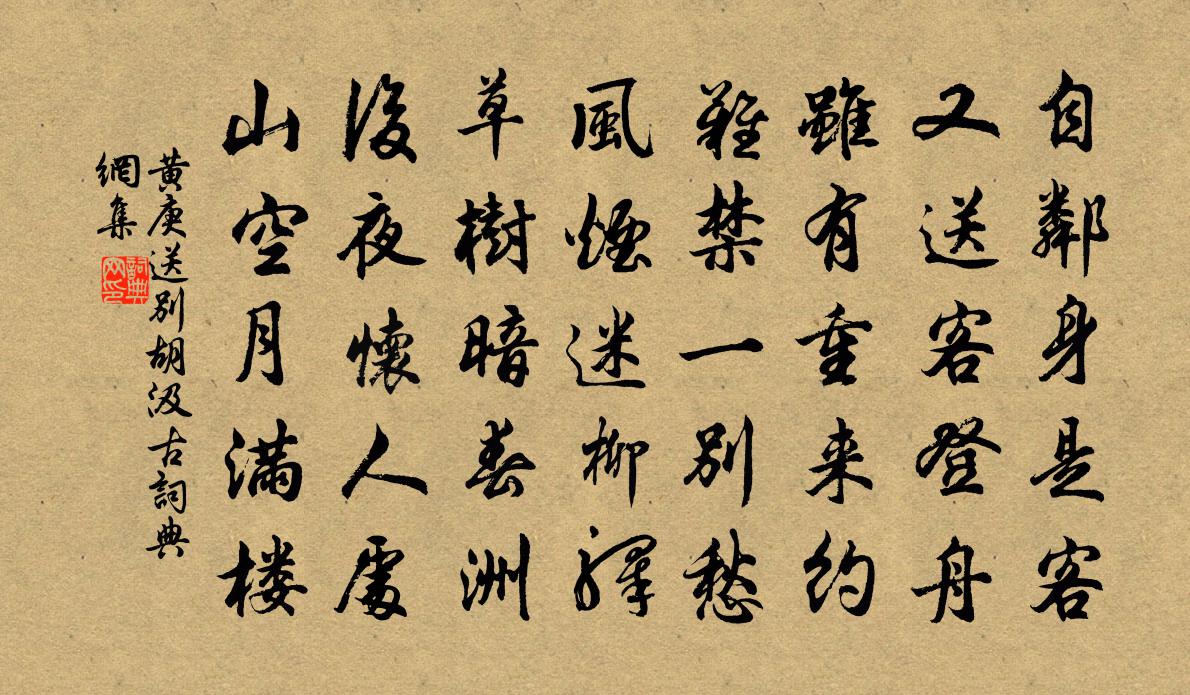 自鄰身是客
又送客登舟
雖有重来約
難禁一別愁
風煙迷柳驛
草樹暗春洲
後夜懷人處
山空月滿楼
黄庚送别胡汲古詞典
網集
詞典
网印